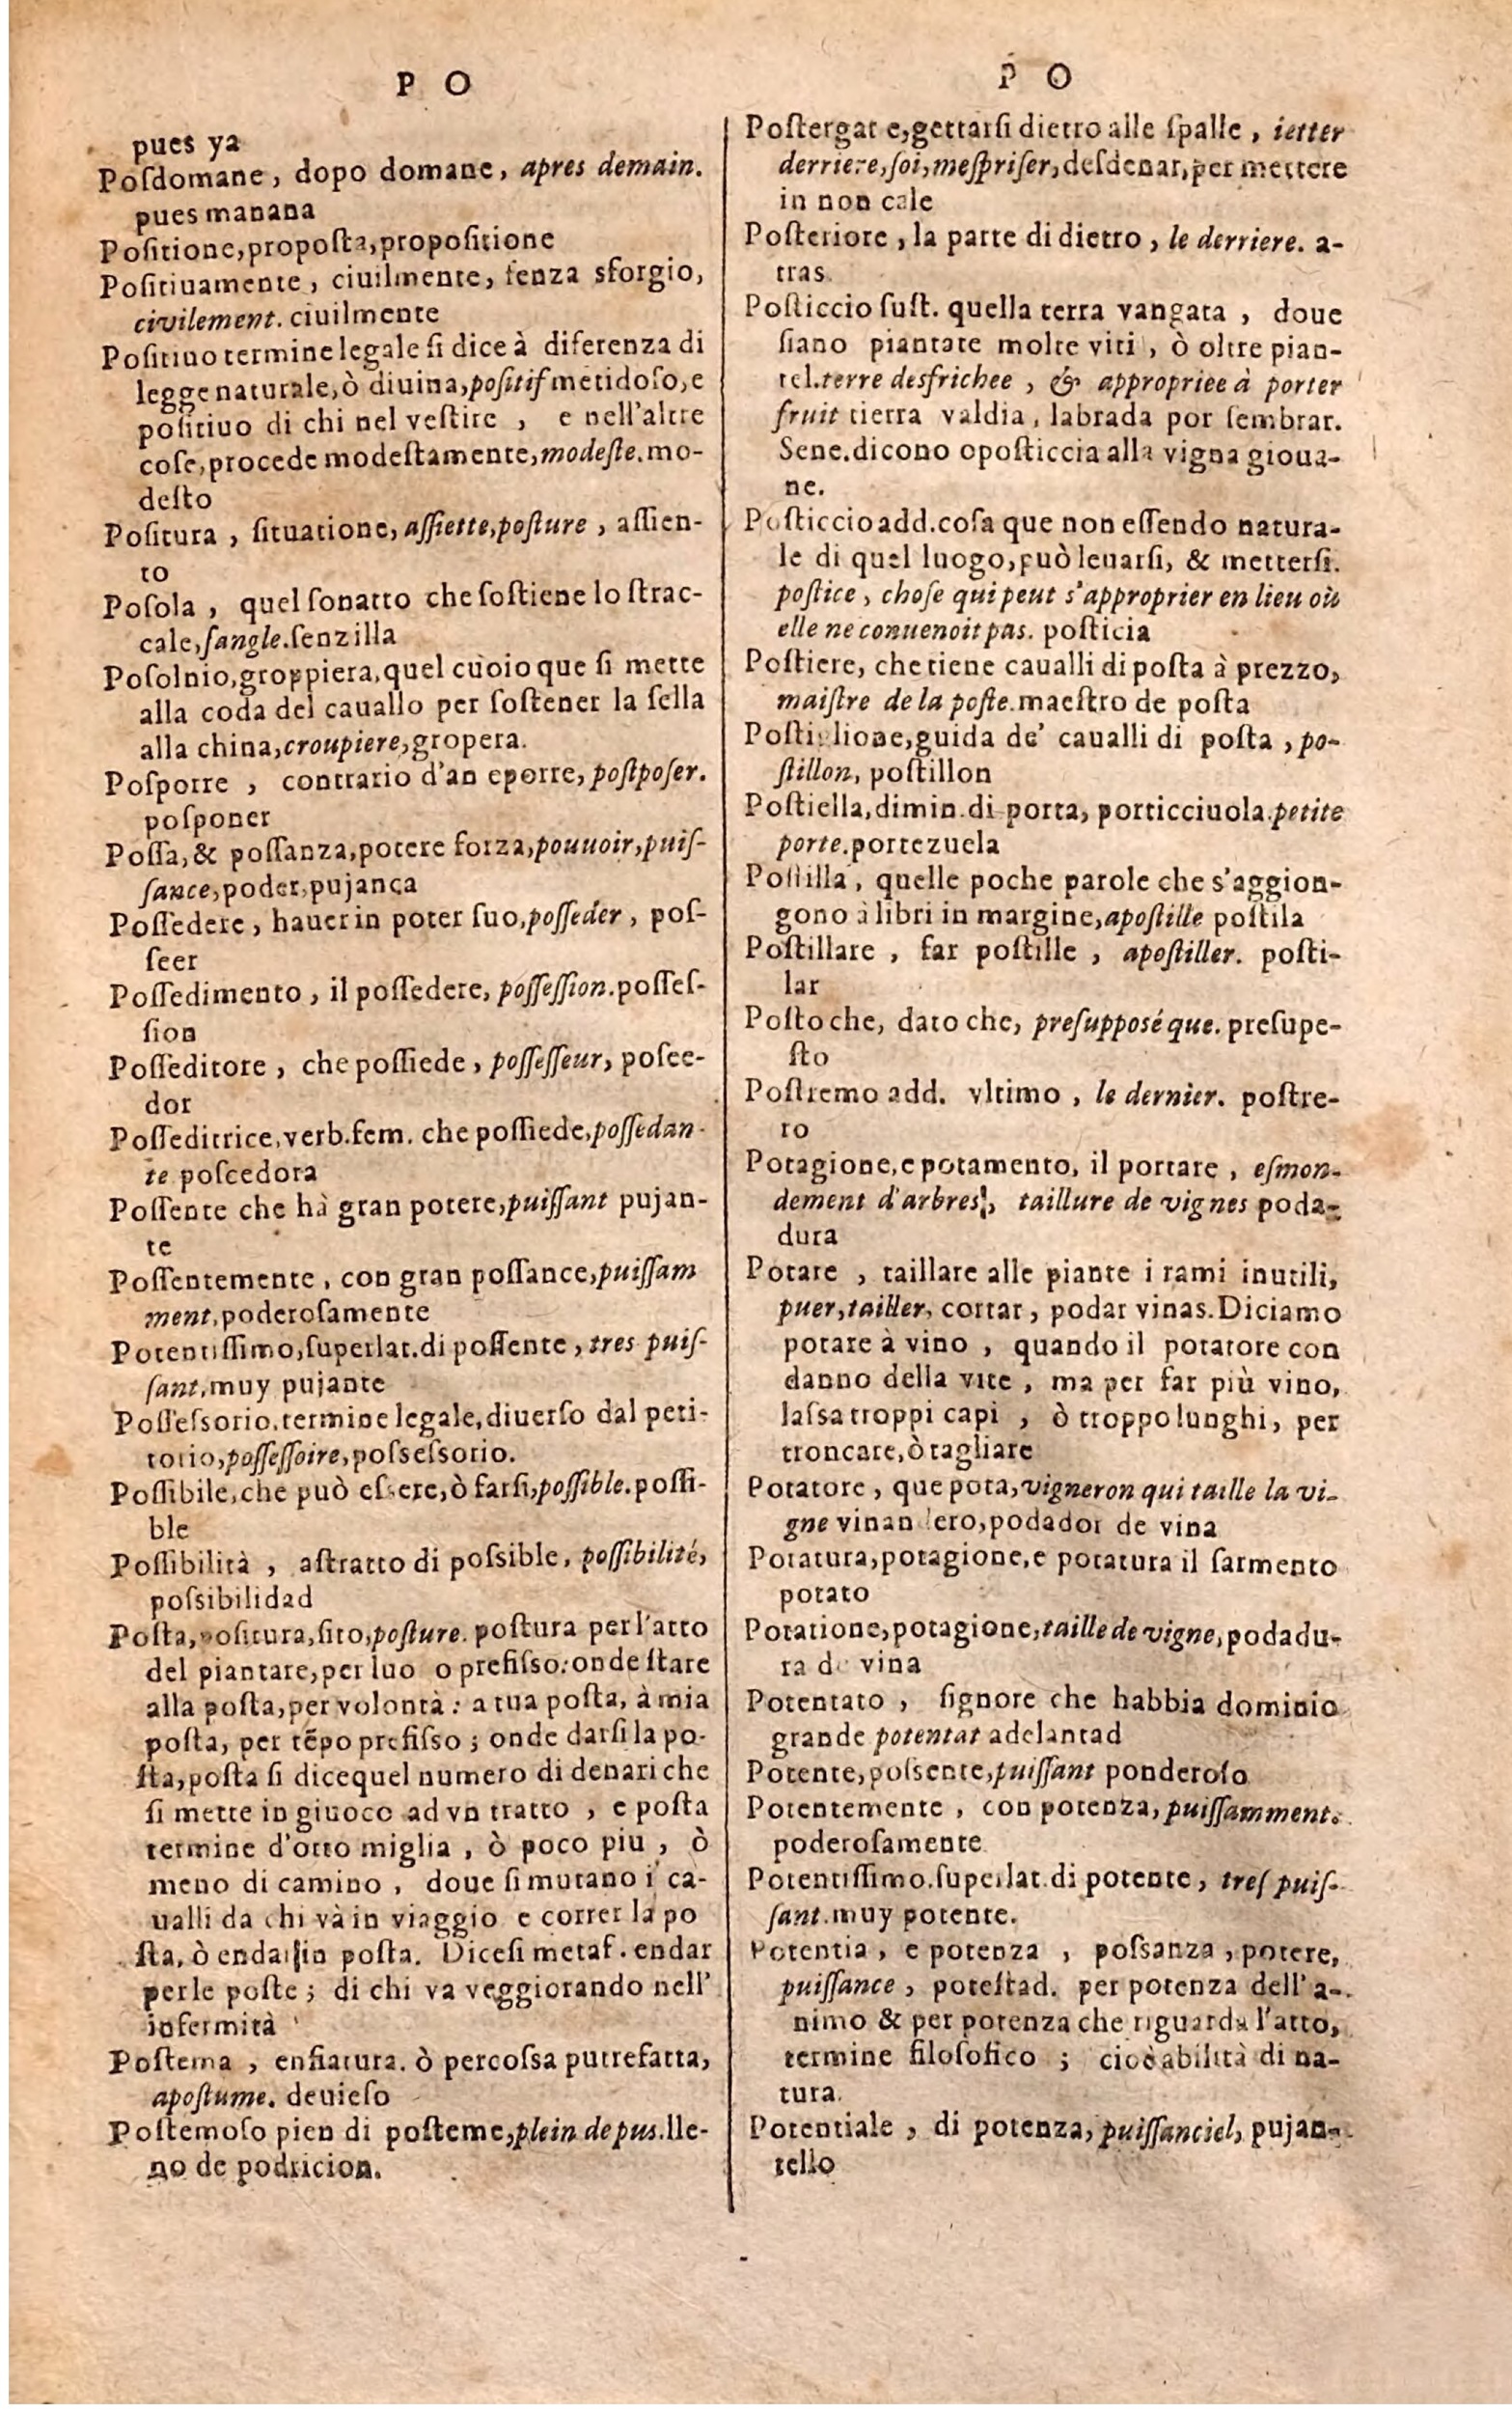 P O
pues ya
Poſdomane, dopo domane, apres demain.
pues manana
Poſitione,propoſta,propoſitione
Poſitiuamente, ciuilmente, ſenza sforgio,
civilement. ciuilmente
Poſitiuo termine legale ſi dice à diferenza di
legge naturale,ò diuina,poſitif metidoſo,e
poſitiuo di chi nel veſtire , e nell'altre
coſe,procede modeſtamente,modeſte.mo-
deſto
Poſitura , ſituatione,aſſiette,poſture , aſſien-
to
Poſola , quel ſonatto che ſoſtiene lo ſtrac-
cale,ſangle.ſenzilla
Poſolnio,groppiera,quel cuoio que ſi mette
alla coda del cauallo per ſoſtener la ſella
alla china,croupiere,gropera.
Poſporre , contrario d'an eporre,poſtpoſer.
poſponer
Poſſa,& poſſanza,potere forza,pouuoir,puiſ-
ſance,poder,pujança
Poſſedere , hauer in poter ſuo,poſſeder , poſ-
ſeer
Poſſedimento , il poſſedere, poſſeſſion.poſſeſ-
ſion
Poſſeditore , che poſſiede , poſſeſſeur, poſee-
dor
Poſſeditrice,verb.fem. che poſſiede,poſſedan-
te poſcedora
Poſſente che hà gran potere,puiſſant pujan-
te
Poſſentemente , con gran poſſance,puiſſam
ment,poderoſamente
Potentiſſimo,ſuperlat.di poſſente , tres puiſ-
ſant,muy pujante
Poſſeſsorio,termine legale,diuerſo dal peti-
torio,poſſeſſoire,poſseſsorio.
Poſſibile,che può eſsere,ò farſi,poſſible.poſſi-
ble
Poſſibilità , aſtratto di poſsible, poſſibilité,
poſsibilidad
Poſta,poſitura,ſito,poſture. poſtura per l'atto
del piantare,per luo o prefiſso:onde ſtare
alla poſta,per volontà: a tua poſta, à mia
poſta, per tẽpo prefiſso ; onde darſi la po-
ſta,poſta ſi dicequel numero di denari che
ſi mette in giuoco ad vn tratto , e poſta
termine d'otto miglia , ò poco piu , ò
meno di camino , doue ſi mutano i ca-
ualli da chi và in viaggio e correr la po
ſta, ò endar in poſta. Diceſi metaf. endar
per le poſte ; di chi va veggiorando nell'
infermità
Poſtema , enfiatura. ò percoſsa putrefatta,
apoſtume. deuieſo
Poſtemoſo pien di poſteme,plein de pus.lle-
no de podricion.
P O
Poſtergar e,gettarſi dietro alle ſpalle , ietter
derriere,ſoi,meſpriſer,deſdenar,per mettere
in non cale
Poſteriore , la parte di dietro , le derriere. a-
tras
Poſticcio ſuſt. quella terra vangata , doue
ſiano piantate molte viti , ò oltre pian-
tel.terre desfrichee , & appropriee à porter
fruit tierra valdia, labrada por ſembrar.
Sene.dicono opoſticcia alla vigna gioua-
ne.
Poſticcio add.coſa que non eſſendo natura-
le di quel luogo,può leuarſi, & metterſi.
poſtice , choſe qui peut s'approprier en lieu où
elle ne conuenoit pas. poſticia
Poſtiere, che tiene caualli di poſta à prezzo,
maiſtre de la poſte.maeſtro de poſta
Poſtiglione,guida de' caualli di poſta , po-
ſtillon, poſtillon
Poſtiella,dimin.di porta, porticciuola.petite
porte.portezuela
Poſtilla, quelle poche parole che s'aggion-
gono à libri in margine,apoſtille poſtila
Poſtillare , far poſtille , apoſtiller. poſti-
lar
Poſto che, dato che, preſuppoſé que. preſupe-
ſto
Poſtremo add. vltimo , le dernier. poſtre-
ro
Potagione,e potamento, il portare , eſmon-
dement d'arbres, taillure de vignes poda-
dura
Potare , taillare alle piante i rami inutili,
puer,tailler, cortar, podar vinas.Diciamo
potare à vino , quando il potatore con
danno della vite , ma per far più vino,
laſsa troppi capi , ò troppo lunghi, per
troncare,ò tagliare
Potatore , que pota,vigneron qui taille la vi-
gne vinandero,podador de vina
Potatura,potagione,e potatura il ſarmento
potato
Potatione,potagione,taille de vigne,podadu-
ra de vina
Potentato , ſignore che habbia dominio
grande potentat adelantad
Potente,poſsente,puiſſant ponderoſo
Potentemente , con potenza,puiſſamment.
poderoſamente
Potentiſſimo.ſuperlat.di potente , treſ puiſ-
ſant.muy potente.
Potentia , e potenza , poſsanza , potere,
puiſſance , poteſtad. per potenza dell'a-
nimo & per potenza che riguarda l'atto,
termine filoſofico ; cioèabilità di na-
tura.
Potentiale , di potenza,puiſſanciel, pujan-
tello